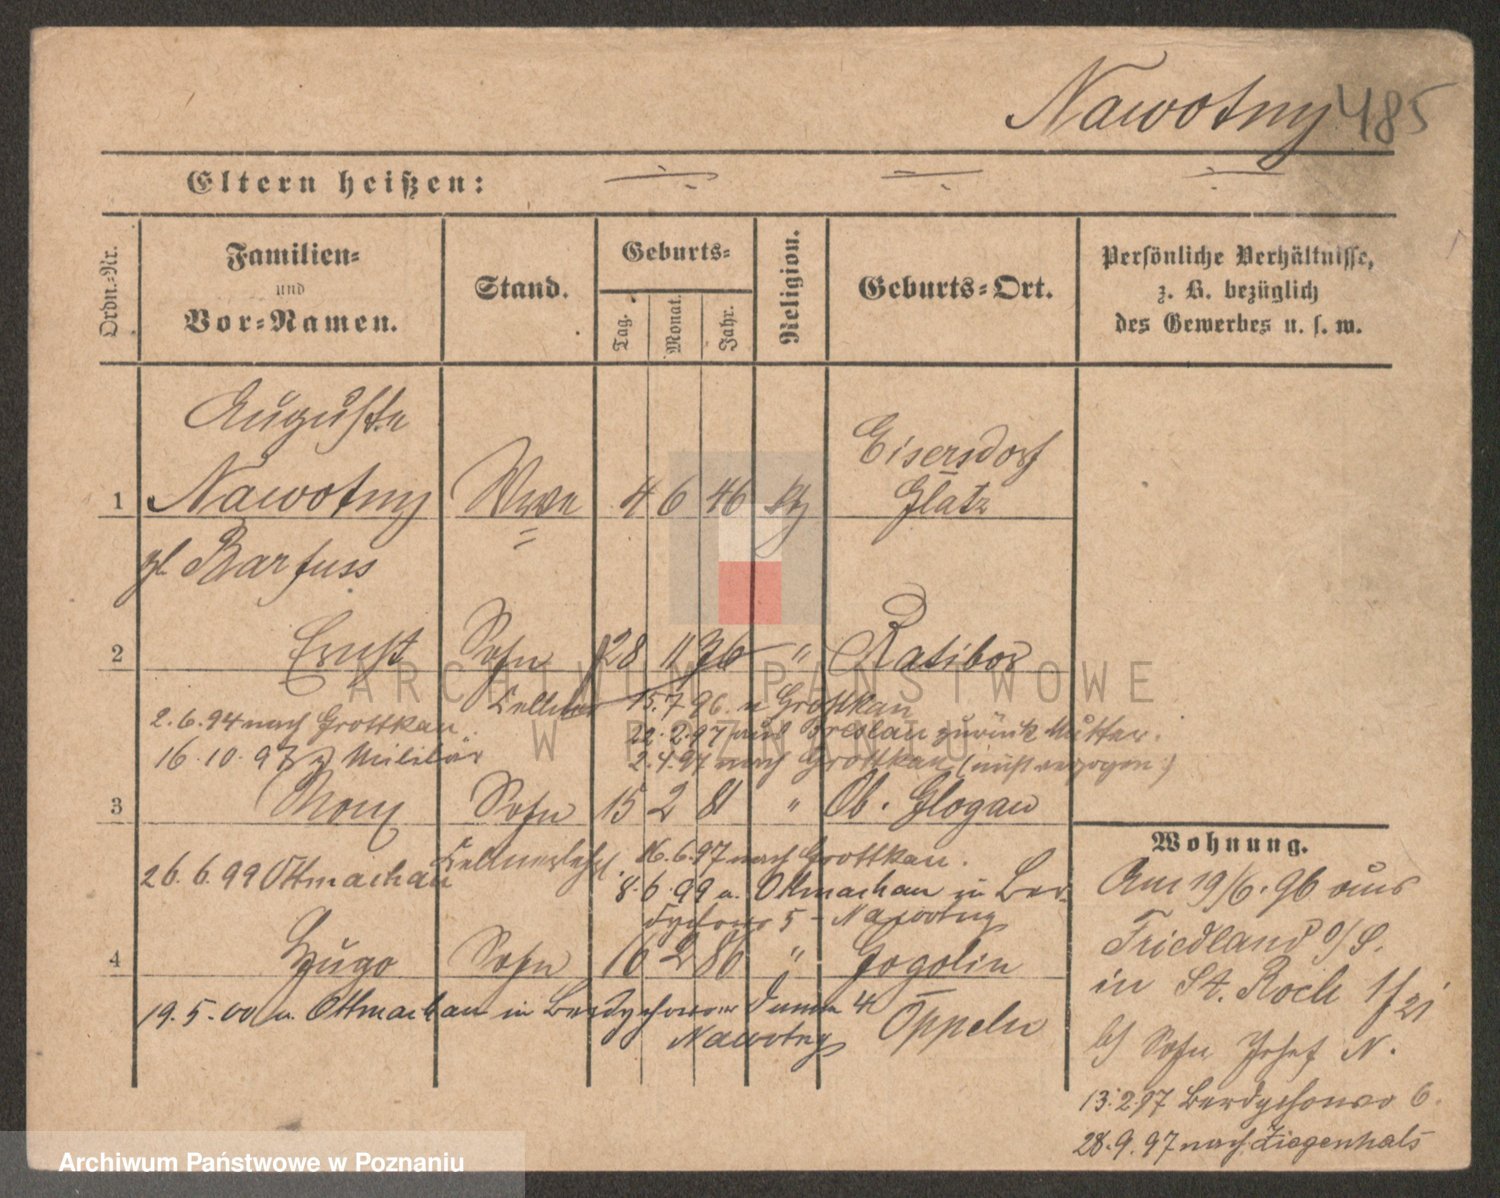 Nawotny 485
Eltern heißen:
Ordn.-Nr.
Familien-
und
Vor-Namen.
Stand.
Geburts-
Tag.
Monat.
Jahr.
Religion.
Geburts-Ort.
Persönliche Verhältnisse,
z. B. bezüglich
des Gewerbes u. s. w.
Auguste
Eisersdorf
1 Nawotny Wwe 4 6 46 kth Glatz
Barfuss
2 Ernst Sohn 28 11 76 " Ratibor
Kellner 15.7.96. n Grottkau
2.6.94 nach Grottkau
22.2.97 aus Breslau zurück Mutter.
16.10.97 z Militär
2.4.97 nach Grottkau
3 Sohn 15 2 81 " Ob. Glogau
Kellnerlehrl. 16.6.97 nach Grottkau.
26.6.99 Ottmachau
8.6.99 a. Ottmachau in Ber-
dychowo 5 - Nawotny
4 Hugo Sohn 16 2 86 " Gogolin
19.5.00 a. Ottmachau in Berdychower Damm 4
Nawotny
Oppeln
Wohnung.
Am 19/6. 96 aus
Friedland o/S.
in St. Roch
b/ Sohn Josef N.
13.2.97 Berdychowo 6.
28.9.97 nach Ziegenhals
ARCHIWUM PAŃSTWOWE
W POZNANIU
Archiwum Państwowe w Poznaniu